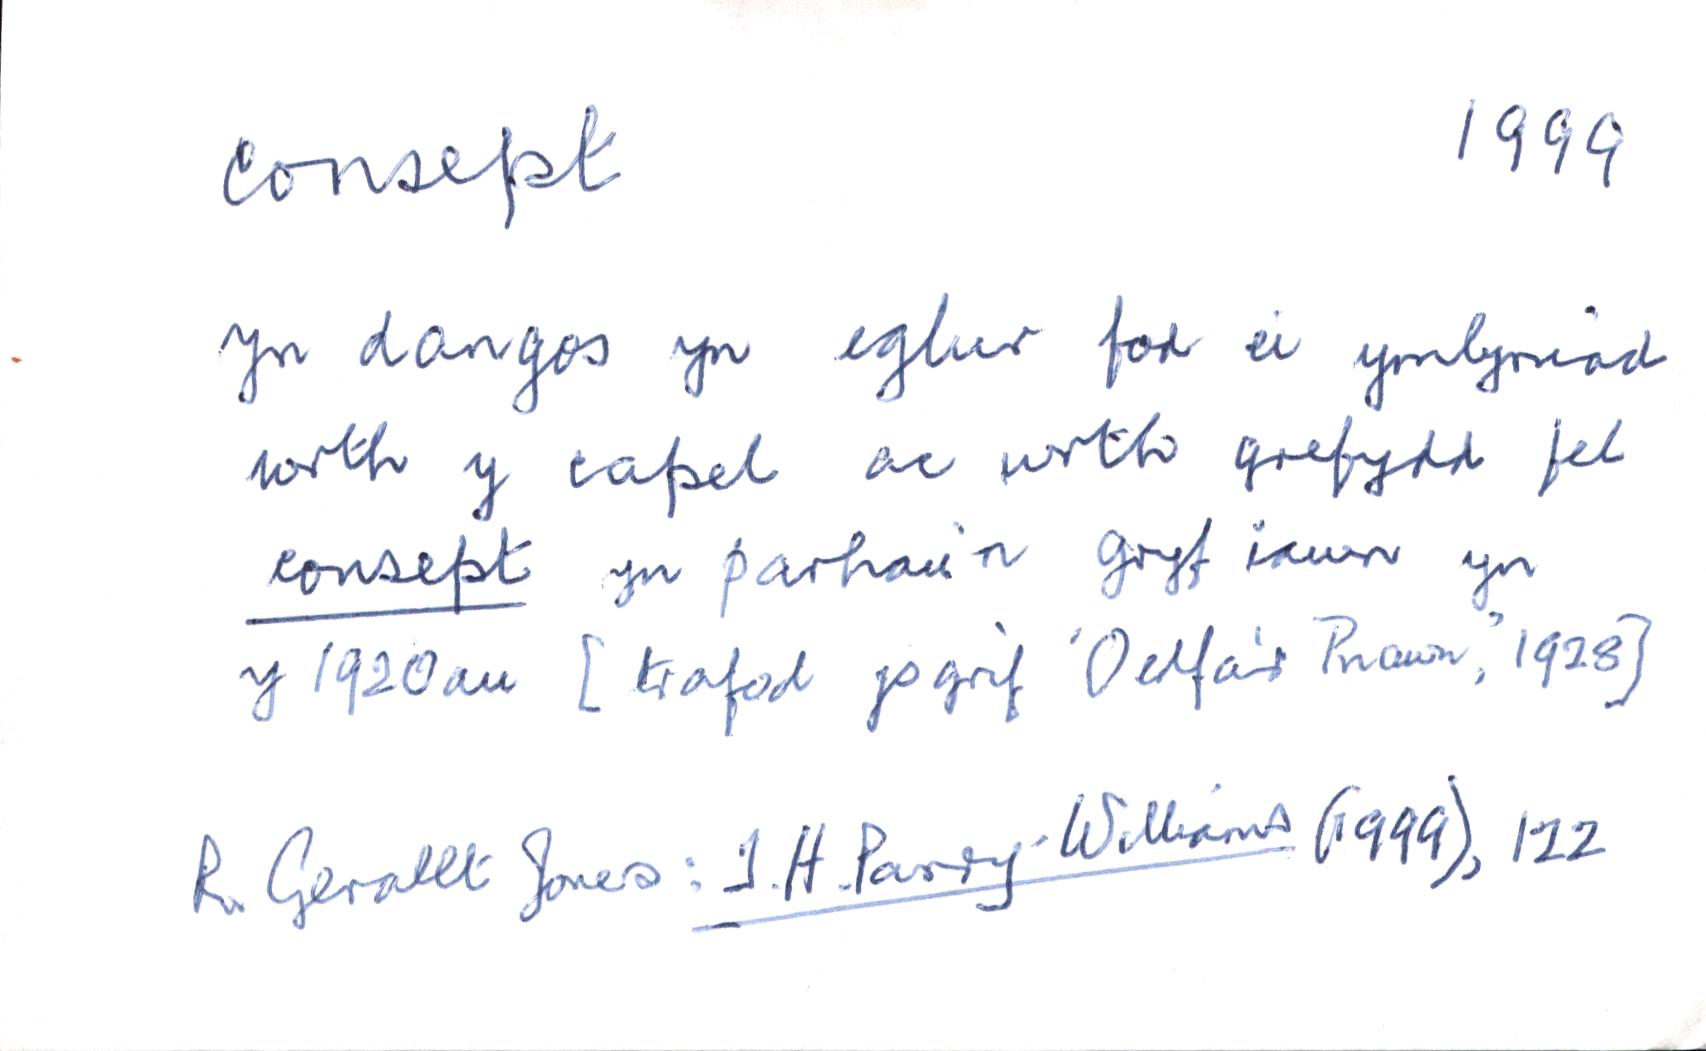 consept 1999
yn dangos yn eglur fod ei ymlyniad
wrth y capel ac wrth grefydd fel
consept yn parhau'n gryf iawn yn
y 1920au [trafod ysgrif 'Oedfa'r Pnawn', 1928]
R. Gerallt Jones: T.H. Parry-Williams (1999), 122